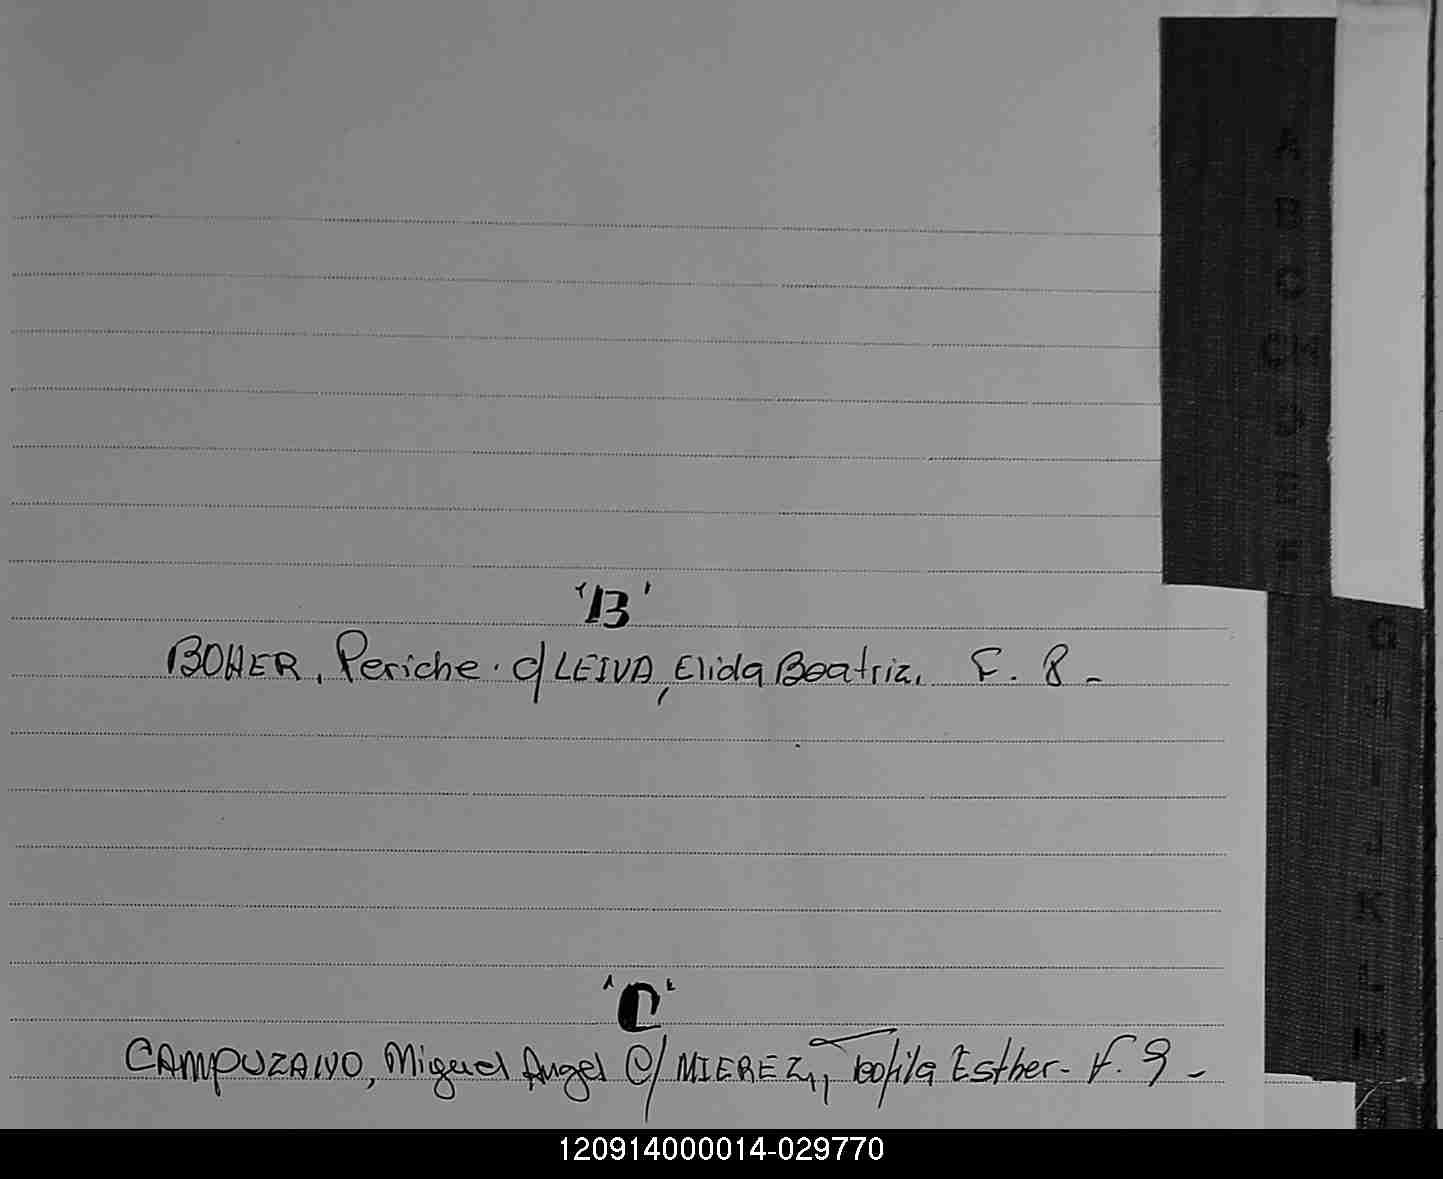 'B'
BOHER, Periche. c/ LEIVA, Elida Beatriz. F. 8 -
'C'
CAMPUZANO, Miguel Angel C/ MIEREZ, Teofila Esther - F. 9 -
A
B
C
CH
D
E
F
G
H
I
J
K
L
M
120914000014-029770